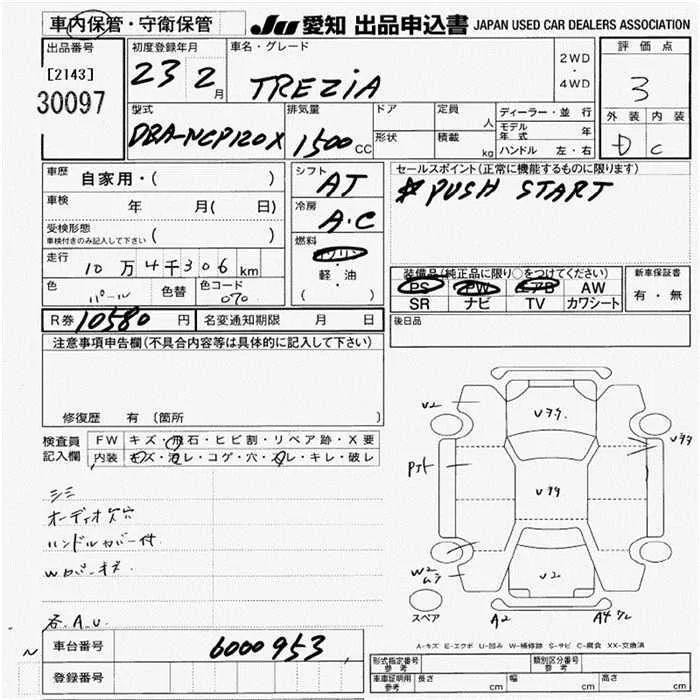 車内保管・守衛保管
JU 愛知 出品申込書 JAPAN USED CAR DEALERS ASSOCIATION
出品番号
[2143]
30097
初度登録年月
23 2 月
車名・グレード
TREZIA
2WD
・
4WD
評価点
3
外装 内装
D C
型式
DBA-NCP120X
排気量
1500 cc
ドア
形状
定員
人
積載
kg
ディーラー・並行
モデル年式 年
ハンドル 左・右
車歴
自家用・( )
車検
年 月( 日)
受検形態
車検付きのみ記入して下さい ( )
走行
10万4千306km
色
パール
色替
色コード
070
シフト
AT
冷房
A・C
燃料
ガソリン
軽・油
( )
セールスポイント(正常に機能するものに限ります)
* PUSH START
装備品(純正品に限り○をつけてください)
PS PW エアB AW
SR ナビ TV カワシート
新車保証書
有・無
R券 10580 円
名変通知期限 月 日
後日品
注意事項申告欄(不具合内容等は具体的に記入して下さい)
修復歴 有 (箇所
検査員
記入欄
FW キズ・飛石・ヒビ割・リペア跡・X要
内装 キズ・汚レ・コゲ・穴・スレ・キレ・破レ
シミ
オーディオ欠穴
ハンドルカバー付
各A.U
U2
Uタタ
Uタタ
Uタタ
W2
U2
A2
A4
スペア
A-キズ E-エクボ U-凹み W-補修跡 S-サビ C-腐食 XX-交換済
車台番号
6000953
登録番号
形式指定番号
参考
類別区分番号
参考
車庫証明用
参考
長さ cm 幅 cm 高さ cm